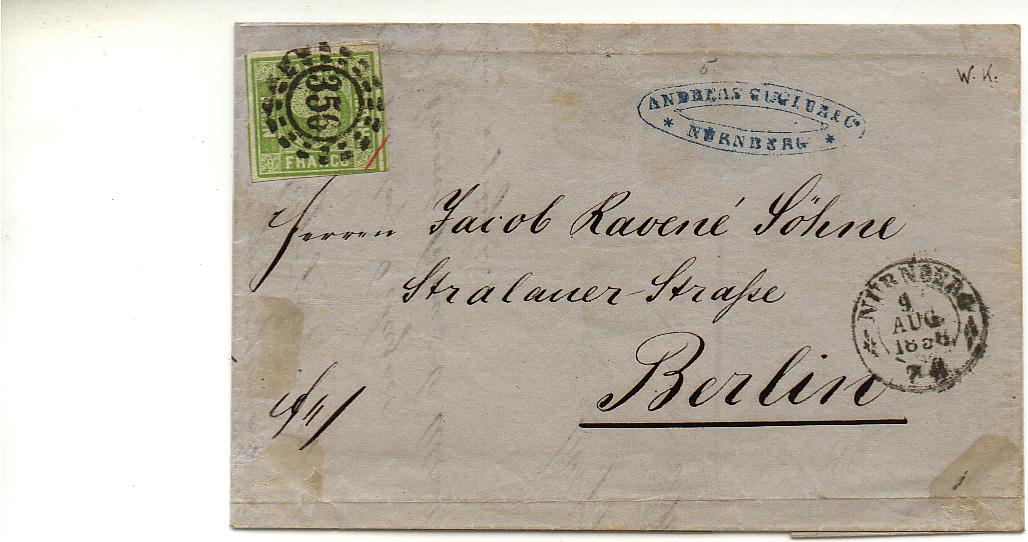 356
FRANCO
5
W. K.
ANDREAS
* NÜRNBERG *
Herren Jacob Ravené Söhne
Stralauer-Straße
Berlin
NÜRNBERG
9
AUG.